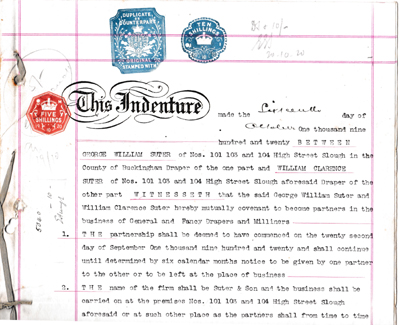 DUPLICATE OR COUNTERPART
ORIGINAL
STAMPED WITH
TEN
SHILLINGS
FIVE
SHILLINGS
This Indenture made the Sixteenth day of
October One thousand nine
hundred and twenty BETWEEN
GEORGE WILLIAM SUTER of Nos. 101 103 and 104 High Street Slough in the
County of Buckingham Draper of the one part and WILLIAM CLARENCE
SUTER of Nos. 101 103 and 104 High Street Slough aforesaid Draper of the
other part WITNESSETH that the said George William Suter and
William Clarence Suter hereby mutually covenant to become partners in the
business of General and Fancy Drapers and Milliners
1. THE partnership shall be deemed to have commenced on the twenty second
day of September One thousand nine hundred and twenty and shall continue
until determined by six calendar months notice to be given by one partner
to the other or to be left at the place of business
2. THE name of the firm shall be Suter & Son and the business shall be
carried on at the premises Nos. 101 103 and 104 High Street Slough
aforesaid or at such other place as the partners shall from time to time